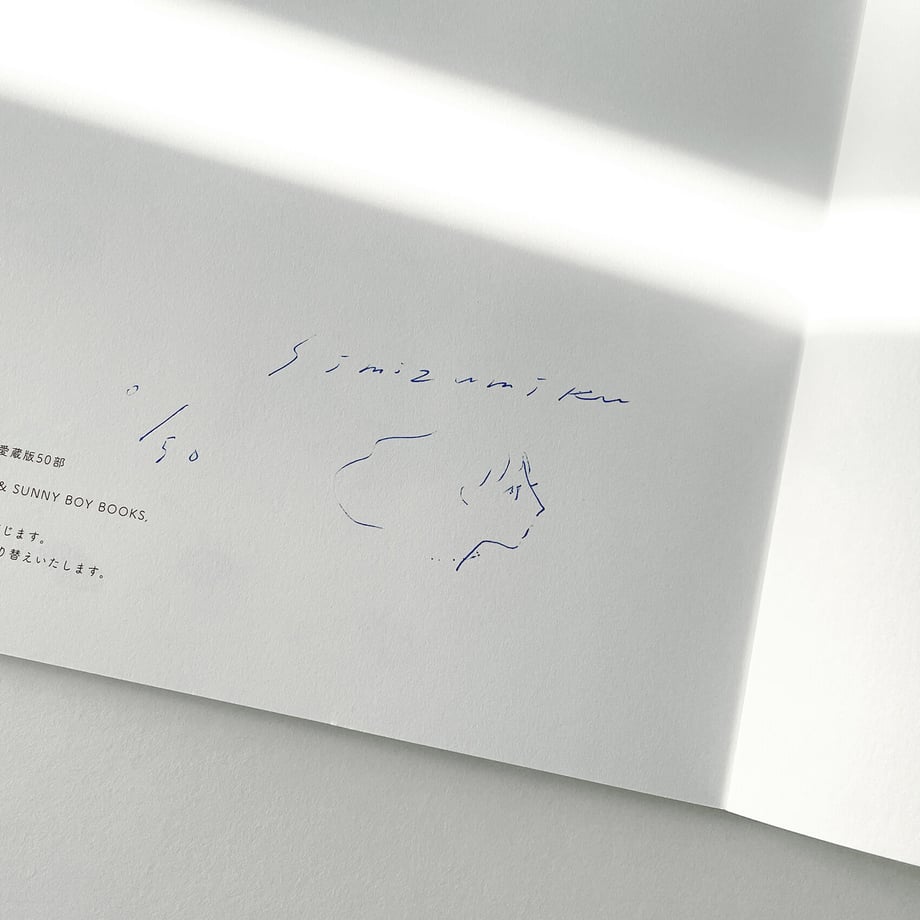 Simizumiku
0/50
愛蔵版50部
& SUNNY BOY BOOKS,
じます。
り替えいたします。